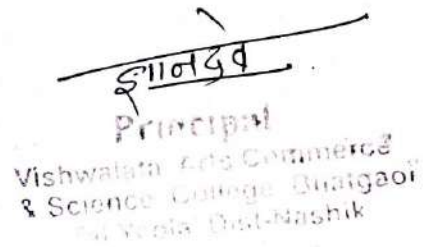 ज्ञानदेव
Principal
Vishwalata Arts Commerce
& Science College Bhatgaon
Yeola Dist-Nashik